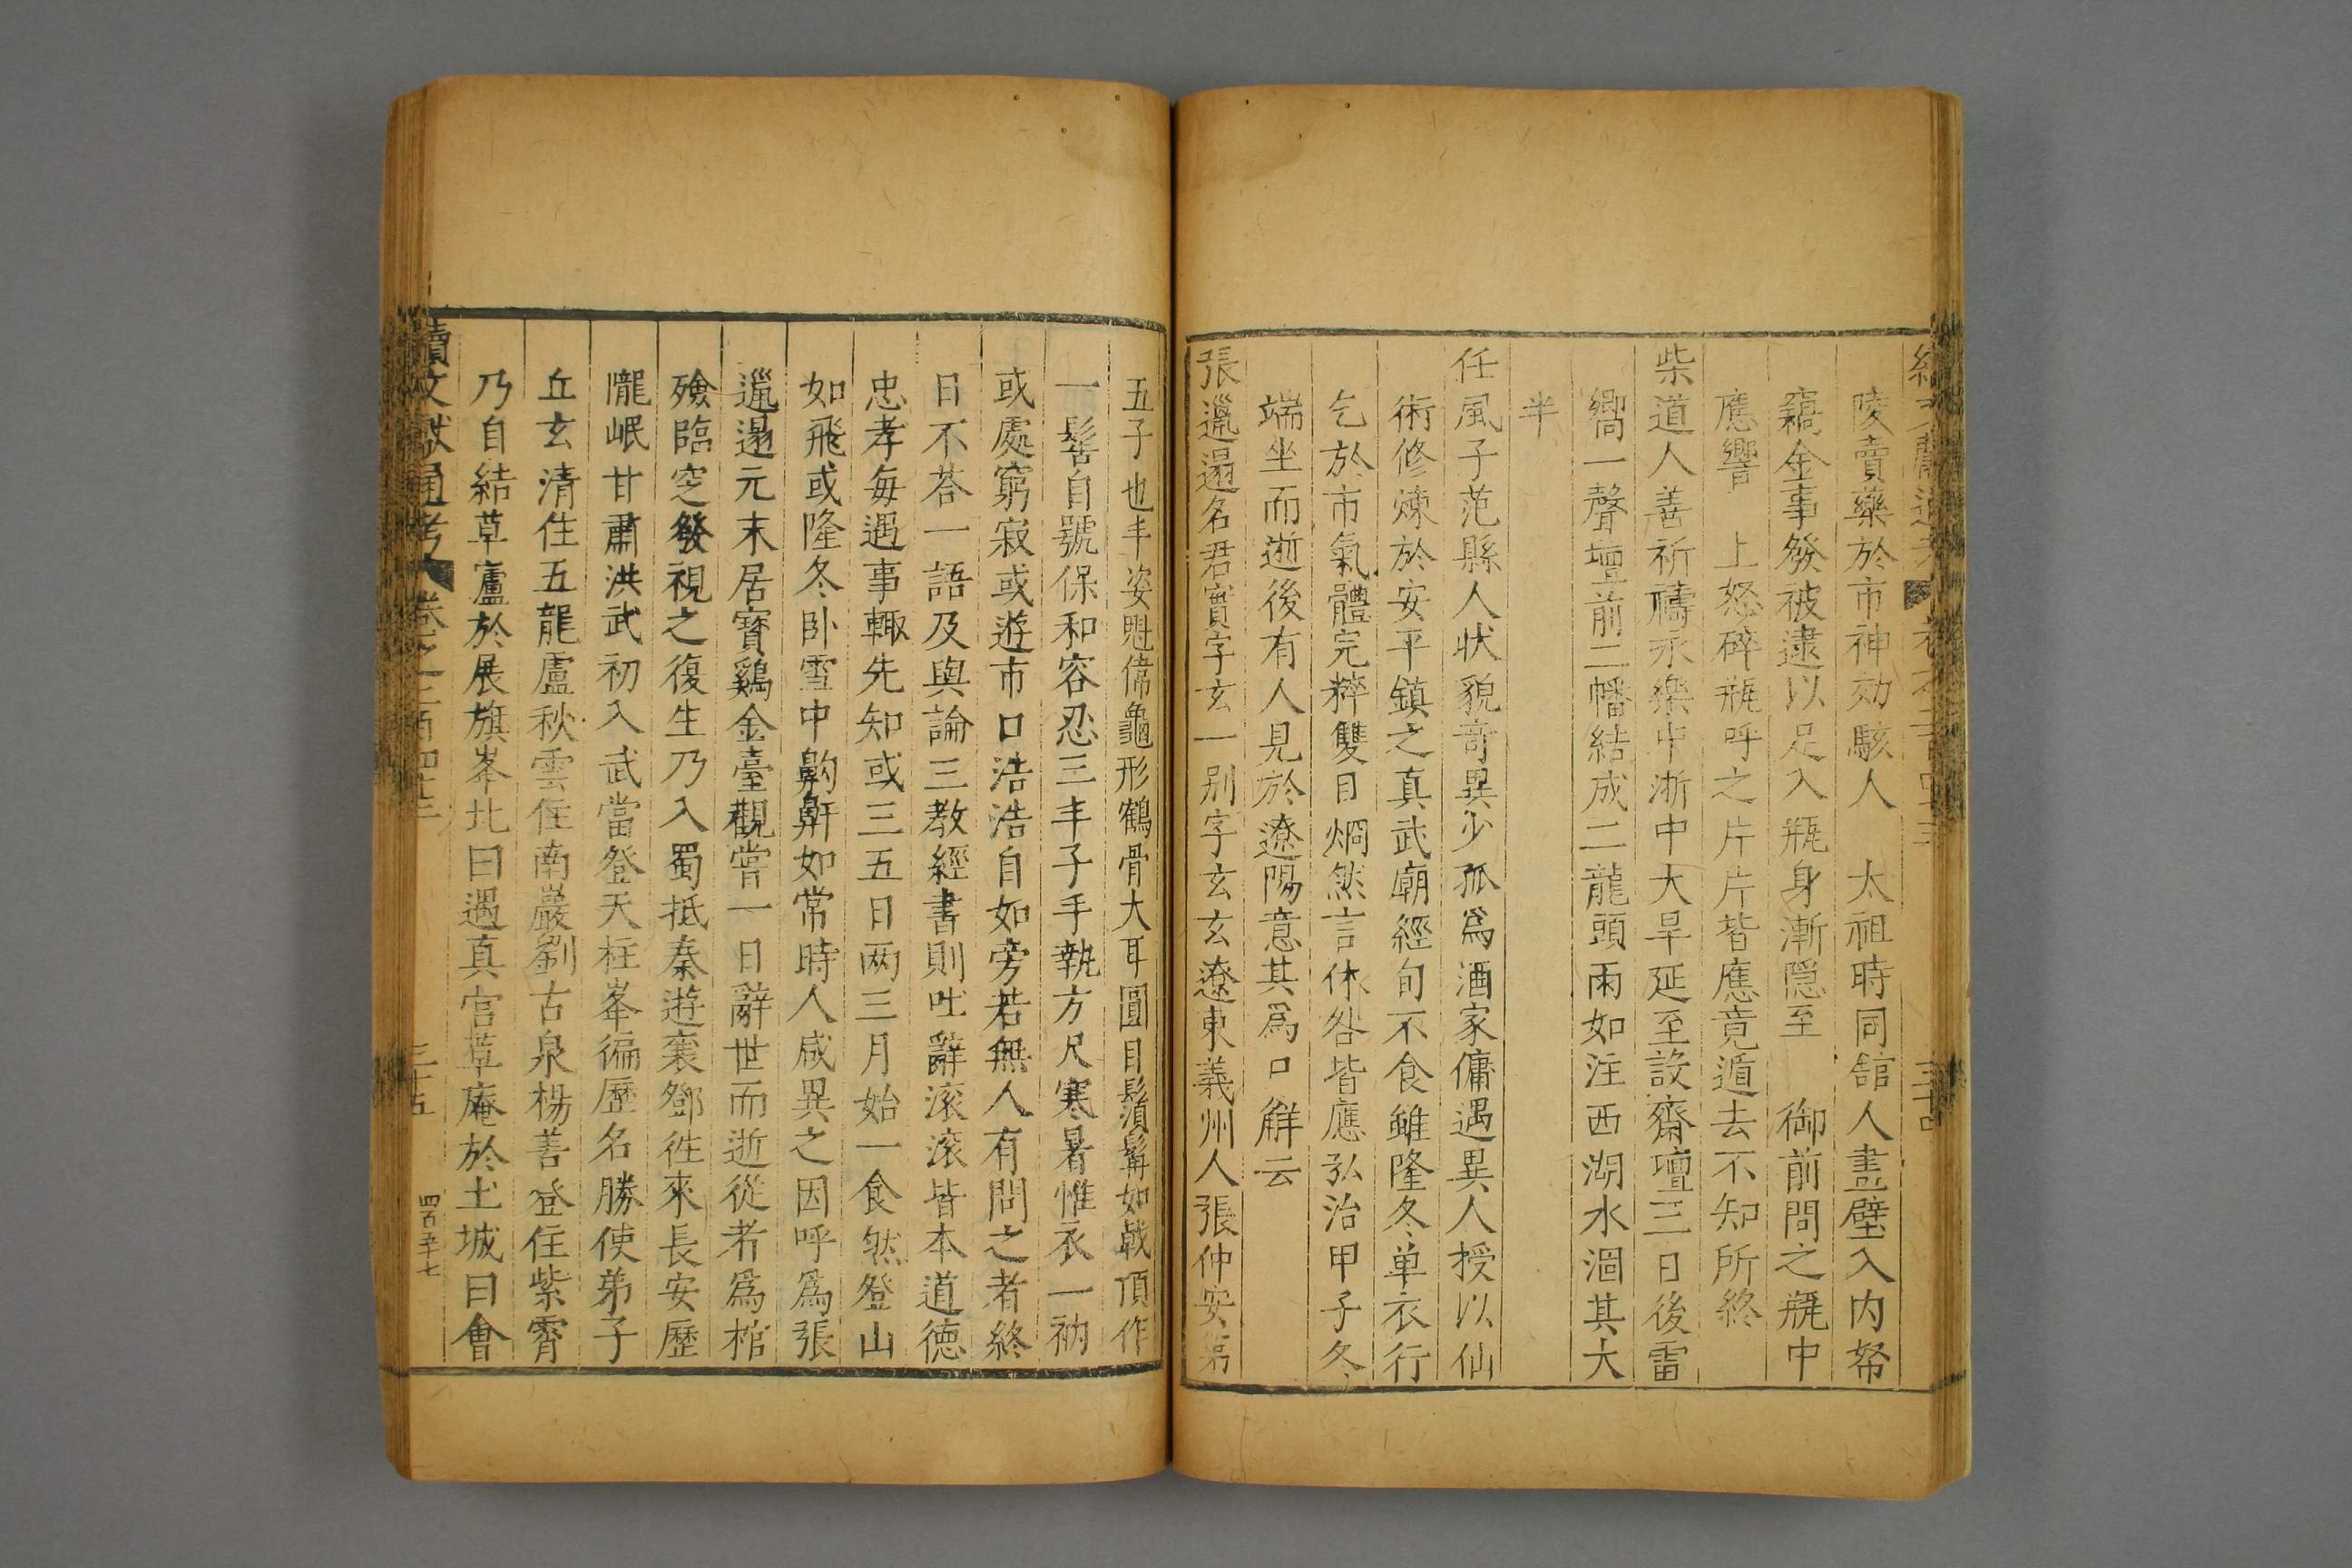 陵賣藥於市神効駭人　太祖時同館人畫壁入内帑
竊金事發被逮以足入瓶身漸隱至　御前問之瓶中
應響　上怒碎瓶呼之片片皆應竟遁去不知所終
柴道人善祈禱永樂中浙中大旱延至設齋壇三日後雷
嚮一聲壇前二幡結成二龍頭雨如注西湖水涸其大
半
任風子范縣人狀貌竒異少孤爲酒家傭遇異人授以仙
術修煉於安平鎮之真武廟經旬不食雖隆冬单衣行
乞於市氣體完粹雙目烱然言休咎皆應弘治甲子冬
端坐而逝後有人見於遼陽意其爲尸解云
張邋遢名君實字玄一别字玄玄遼東義州人張仲安第
五子也丰姿魁偉龜形鶴骨大耳圓目鬚髯如戟頂作
一髻自號保和容忍三丰子手執方尺寒暑惟衣一衲
或處窮寂或遊市口浩浩自如旁若無人有問之者終
日不荅一語及與論三教經書則吐辭滚滚皆本道德
忠孝每遇事輙先知或三五日两三月始一食然登山
如飛或隆冬卧雪中齁鼾如常時人咸異之因呼爲張
邋遢元末居寶鷄金臺觀嘗一日辭世而逝從者爲棺
殮臨窆發視之復生乃入蜀抵秦遊襄鄧徃來長安歷
隴岷甘肅洪武初入武當登天柱峯徧歷名勝使弟子
丘玄清住五龍盧秋雲住南巖劉古泉楊善登住紫霄
乃自結草廬於展旗峯北曰遇真宫草庵於土城曰會
續文獻通考　卷之二百四十三　三十五　四百五十七